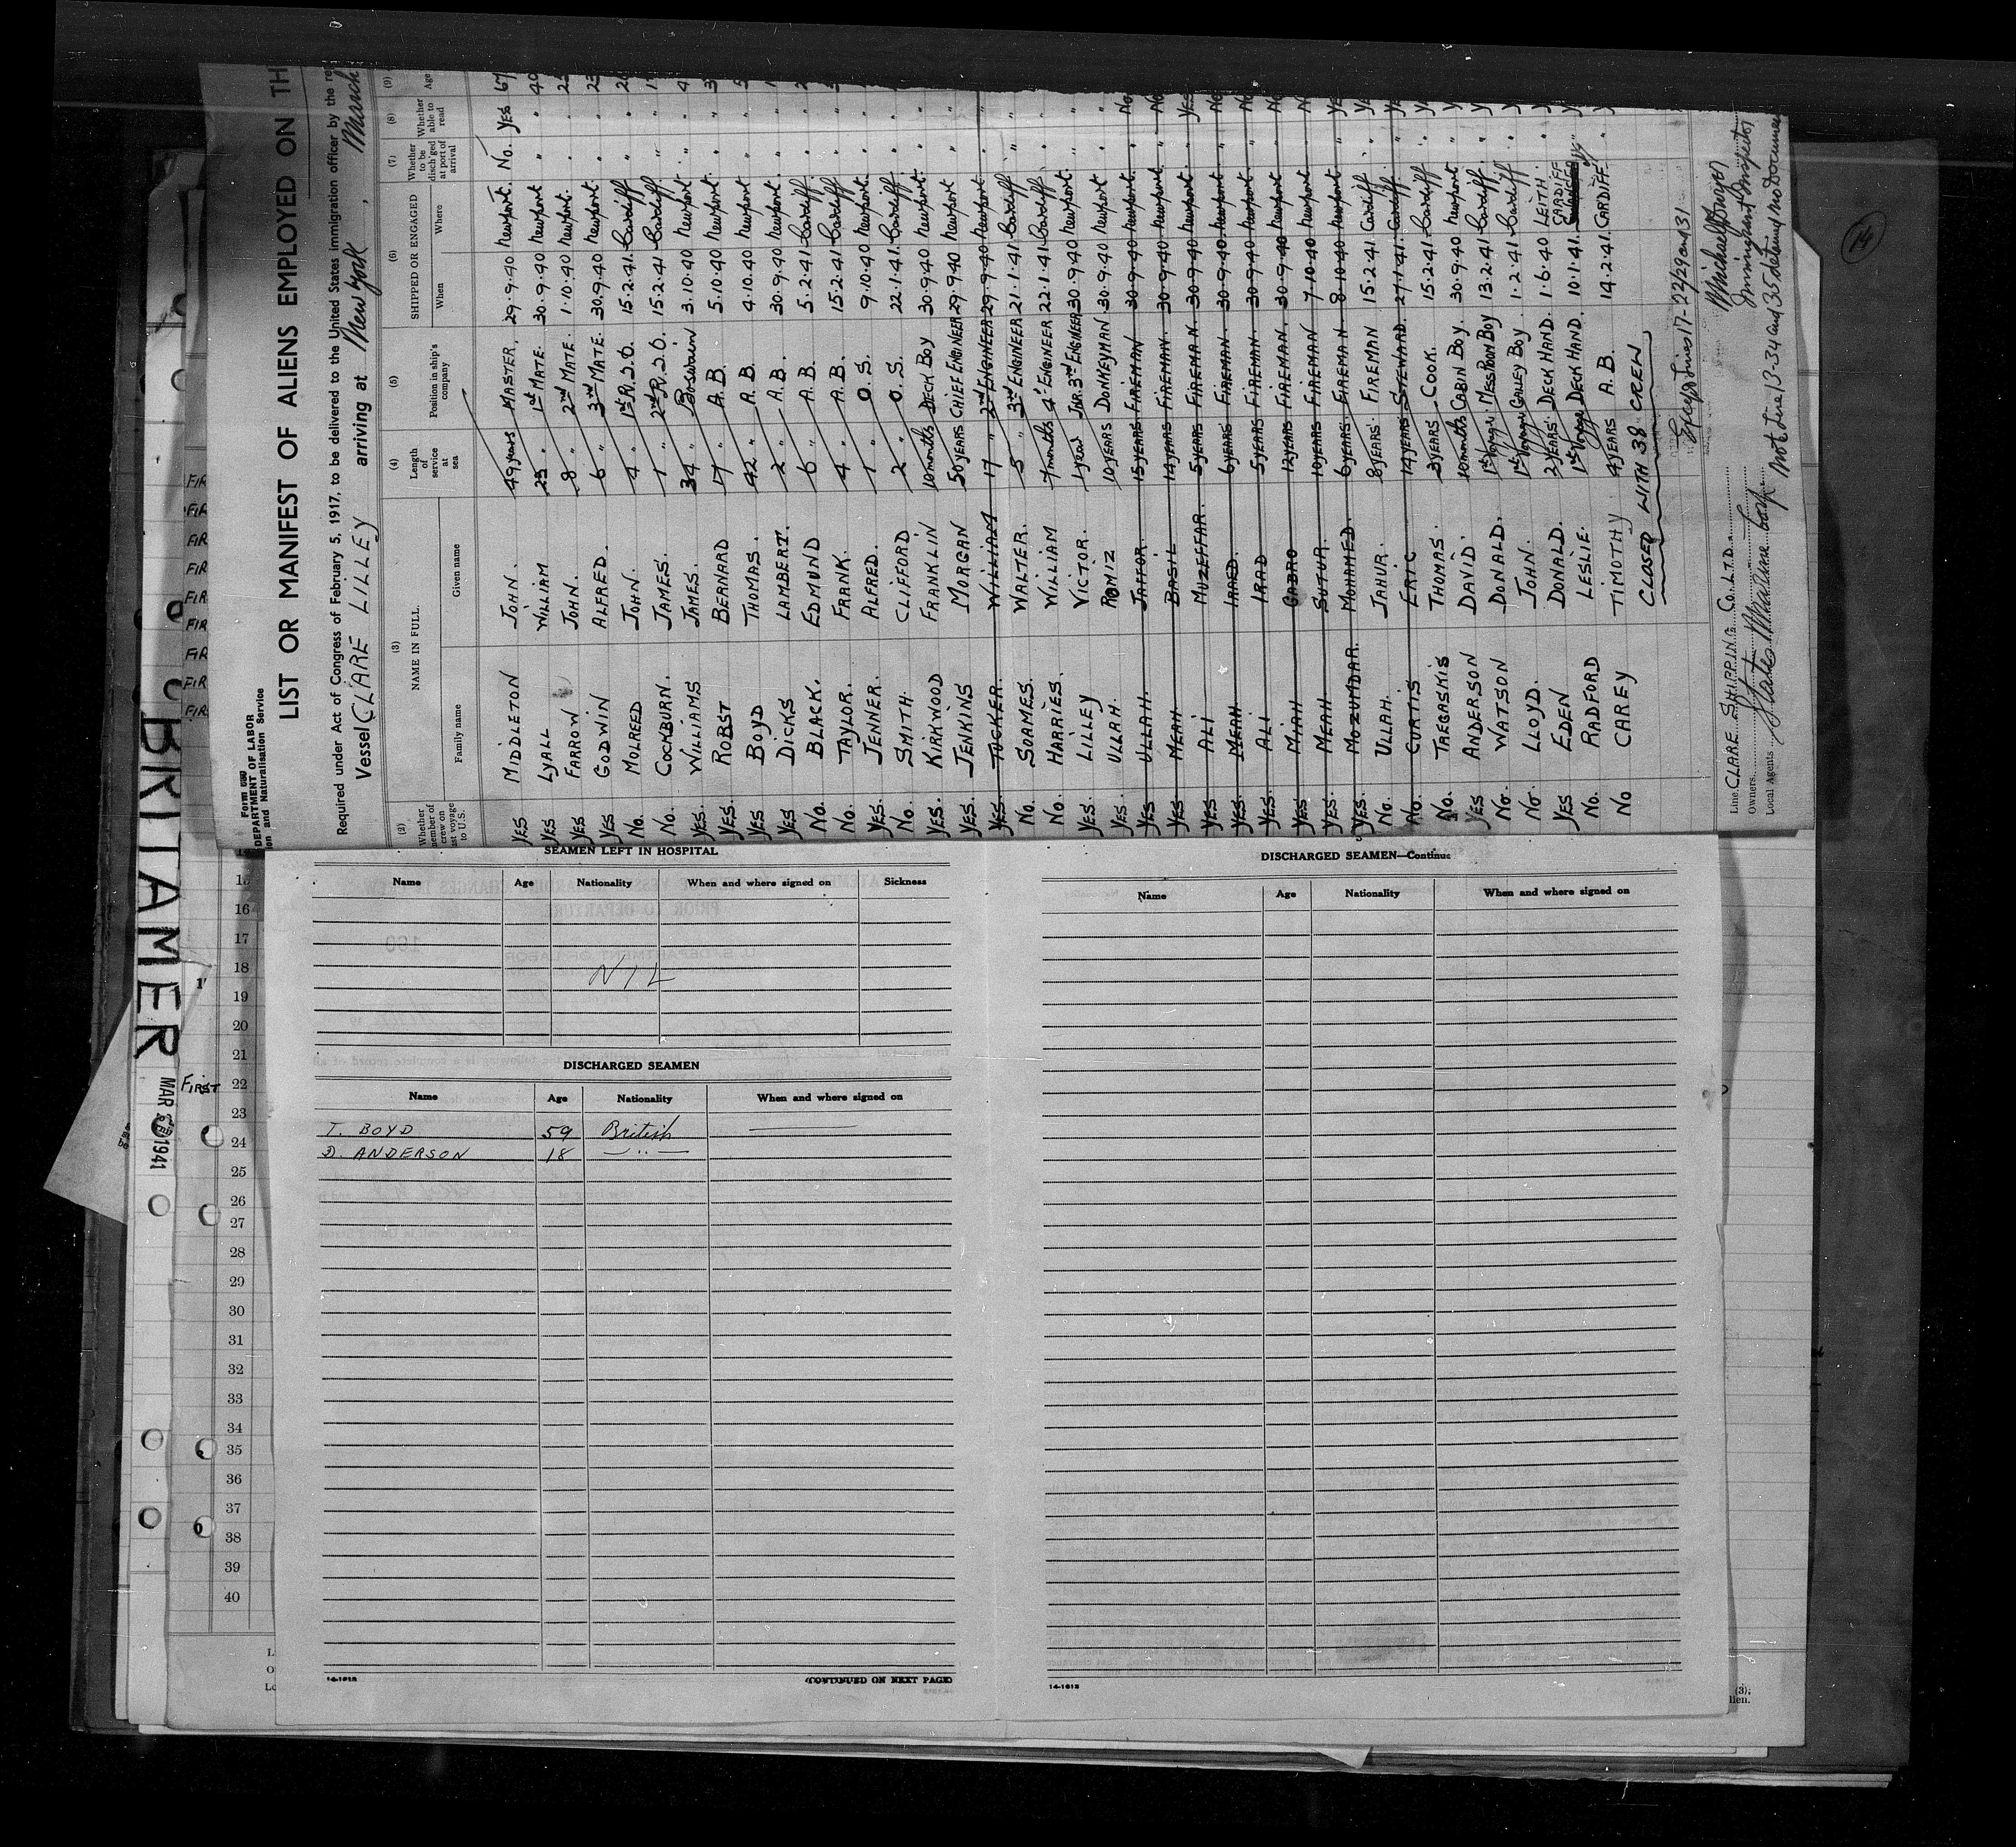 Form 680
DEPARTMENT OF LABOR
on and Naturalisation Service
LIST OR MANIFEST OF ALIENS EMPLOYED ON TH
Required under Act of Congress of February 5, 1917, to be delivered to the United States immigration officer by the re
Vessel CLARE LILLEY arriving at New York, March
(2) (3) (4) (5) (6) (7) (8) (9)
Whether member of crew on last voyage to U.S. NAME IN FULL. Family name Given name Length of service at sea Position in ship's company SHIPPED OR ENGAGED When Where Whether to be disch'ged at port of arrival Whether able to read Age
YES MIDDLETON JOHN. 49 years MASTER. 29.9.40 Newport. No. Yes 67
YES LYALL WILLIAM 23 " 1st MATE. 30.9.40 Newport " " 40
YES FARROW JOHN. 8 " 2nd MATE. 1.10.40 Newport. " "
YES GODWIN ALFRED. 6 " 3rd MATE. 30.9.40 Newport. " "
No. MOLREED JOHN. 4 " 1st R.D.O. 15.2.41. Cardiff " "
No. COCKBURN. JAMES. 1 " 2nd R.D.O. 15.2.41 Cardiff. " "
YES. WILLIAMS JAMES. 34 " Boswain 3.10.40 Newport. " "
YES. ROBST BERNARD 17 " A.B. 5.10.40 Newport. " "
YES BOYD THOMAS. 42 " A.B. 4.10.40 Newport " "
YES DICKS LAMBERT. 2 " A.B. 30.9.40 Newport. " "
No. BLACK. EDMUND 6 " A.B. 5.2.41. Cardiff. " "
No. TAYLOR. FRANK. 4 " A.B. 15.2.41. Cardiff " "
YES. JENNER. ALFRED. 1 " O.S. 9.10.40 Newport. " "
No. SMITH. CLIFFORD 2 " O.S. 22.1.41. Cardiff. " "
YES. KIRKWOOD FRANKLIN 10 months DECK BOY 30.9.40 Newport. " "
YES. JENKINS MORGAN 50 YEARS CHIEF ENGINEER 29.9.40 Newport " "
YES. TUCKER. WILLIAM 17 " 2nd ENGINEER 29.9.40 Newport. " "
No. SOAMES. WALTER. 5 " 3rd ENGINEER 21.1.41 Cardiff " "
No. HARRIES. WILLIAM 7 months 4th ENGINEER 22.1.41 Cardiff. " "
YES. LILLEY VICTOR. 1 year JNR. 3rd ENGINEER 30.9.40 Newport " "
YES. ULLAH. ROMIZ 10 YEARS DONKEYMAN. 30.9.40 Newport " No
YES ULLAH. JAFFOR. 15 YEARS FIREMAN 30.9.40 Newport. " No
YES MEAH BASIL 14 YEARS FIREMAN. 30.9.40 Newport. "
YES ALI MUZEFFAR. 5 YEARS FIREMAN. 30.9.40 Newport " YES
YES. MEAH IRAED. 6 YEARS FIREMAN. 30.9.40. Newport. " No
YES. ALI IRAD 5 YEARS FIREMAN. 30.9.40 Newport. " No
YES MIAH GABRO 12 YEARS FIREMAN. 30.9.40 Newport. "
YES. MEAH SUTUR. 10 YEARS FIREMAN 7.10.40 Newport. "
YES. MOZUMDAR. MOHAMED. 6 YEARS. FIREMAN. 8.10.40 Newport. "
No. ULLAH. JAHUR. 8 YEARS. FIREMAN 15.2.41 Cardiff "
No. CURTIS ERIC 14 YEARS STEWARD. 27.1.41. Cardiff. "
No. TREGASKIS THOMAS. 3 YEARS. COOK. 15.2.41. Cardiff "
YES ANDERSON DAVID. 10 months CABIN BOY. 30.9.40 Newport "
No. WATSON DONALD. 1st Voyage. MESSROOM BOY 13.2.41 Cardiff "
No. LLOYD. JOHN. 1st Voyage GALLEY BOY. 1.2.41. Cardiff "
YES EDEN DONALD. 2 YEARS. DECK HAND. 1.6.40 LEITH. "
No. RADFORD LESLIE. 1st Voyage DECK HAND. 10.1.41. CARDIFF "
No CAREY TIMOTHY 4 YEARS A.B. 14.2.41. CARDIFF. "
CLOSED WITH 38 CREW
Line CLARE SHIPPING Co. LTD.
Owners
Local Agents
Immigrant Inspector
14
FIR
FIR
FIR
FIR
FIR
FIR
FIR
FIR
FIR
BRITAMER
MAR 1941
FIRST
15
16
17
18
19
20
21
22
23
24
25
26
27
28
29
30
31
32
33
34
35
36
37
38
39
40
SEAMEN LEFT IN HOSPITAL
Name Age Nationality When and where signed on Sickness
NIL
DISCHARGED SEAMEN
Name Age Nationality When and where signed on
T. BOYD 59 British
D. ANDERSON 18 — " —
14-1613 (CONTINUED ON NEXT PAGE)
DISCHARGED SEAMEN—Continue
Name Age Nationality When and where signed on
14-1613
(3);
lien.